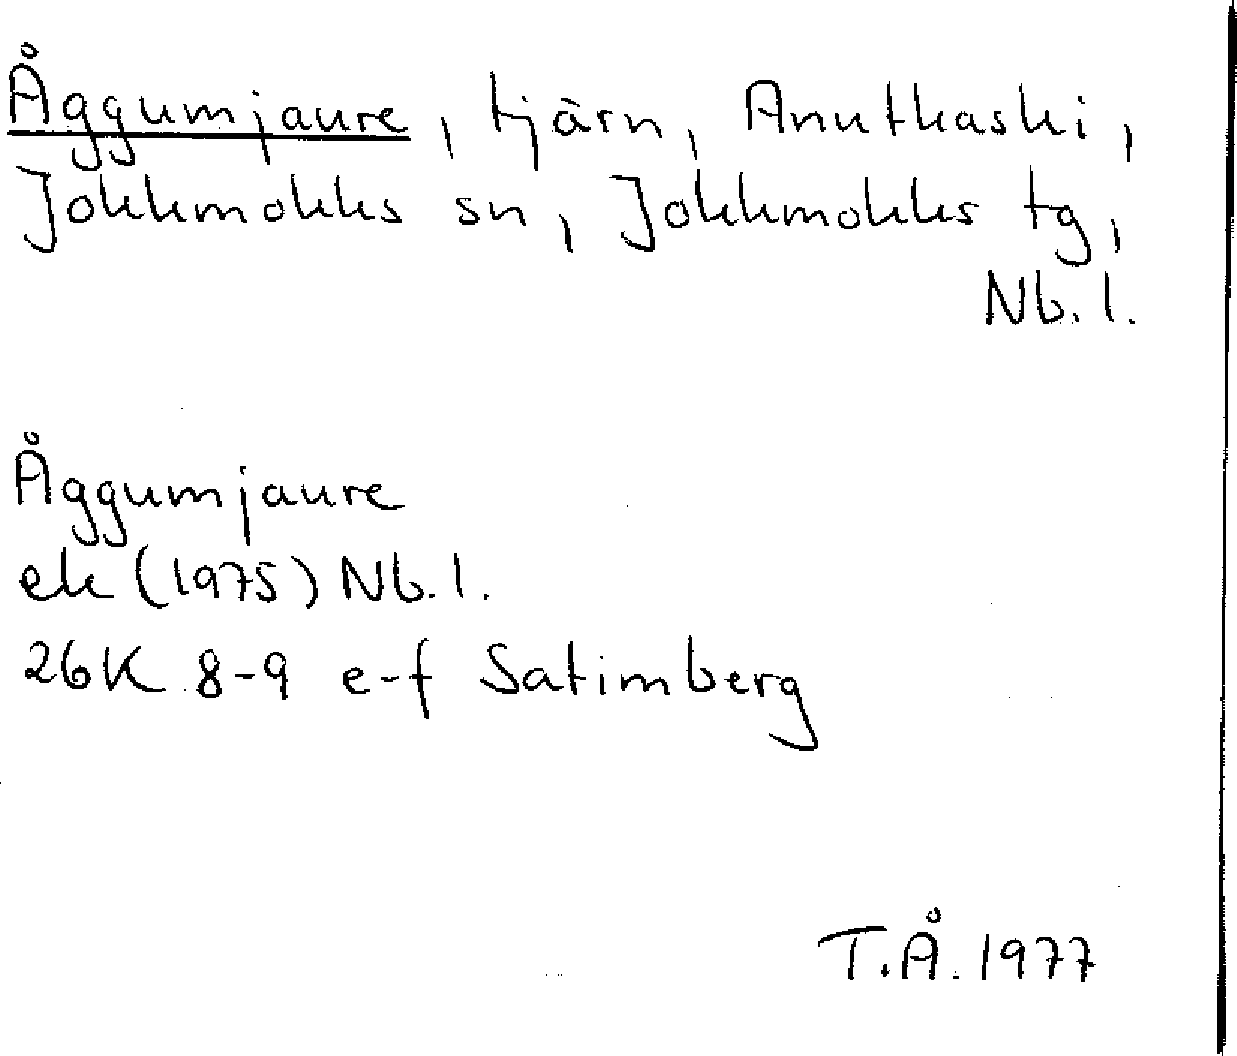 Åggumjaure, tjärn, Anutkaski,
Jokkmokks sn, Jokkmokks tg,
Nb. l.
Åggumjaure
ek (1975) Nb. l.
26K 8-9 e-f Satimberg
T.Å. 1977